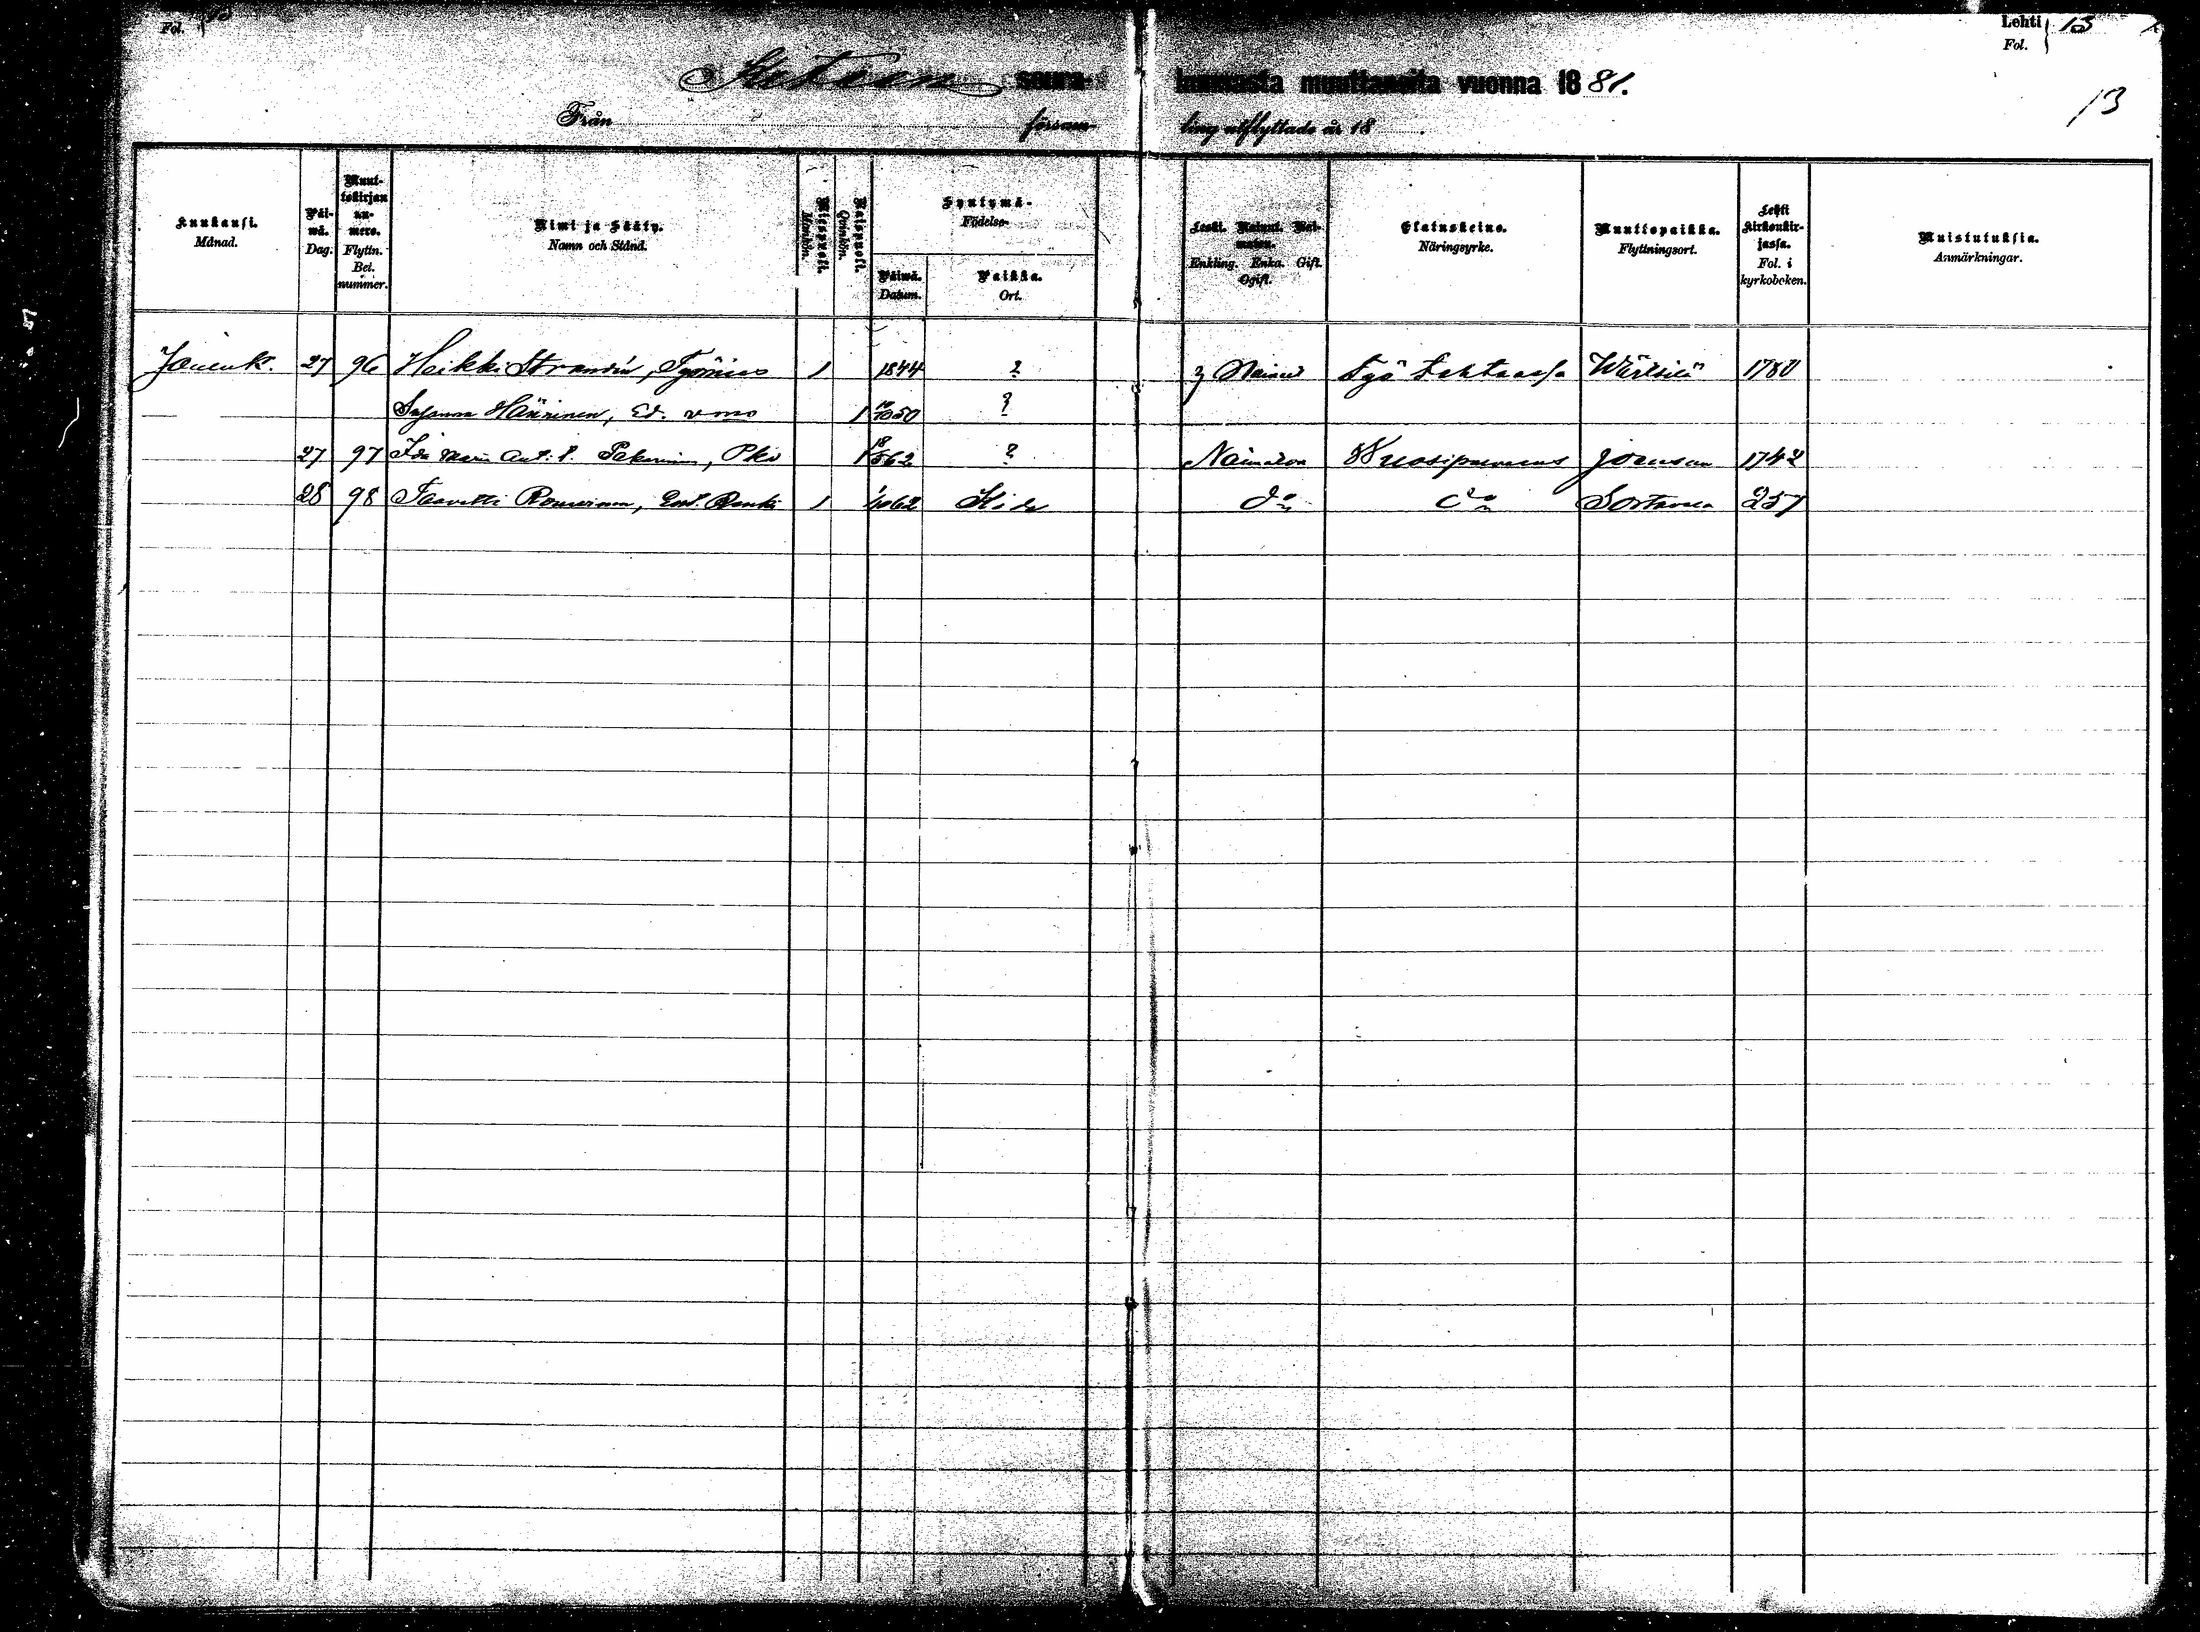 Fol.
Lehti 13
Fol.
13
seurakunnasta muuttaneita vuonna 1881.
Från församling utflyttade år 18
Kuukausi. Månad.
Päiwä. Dag.
Muuttokirjan numero. Flyttn. Bet. nummer.
Nimi ja Sääty. Namn och Stånd.
Miespuoli. Mankön.
Naispuoli. Qvinkön.
Syntymä- Födelse-
Päiwä. Datum.
Paikka. Ort.
Leski. Nainut. Naimaton. Enkling. Enka. Gift. Ogift.
Elatuskeino. Näringsyrke.
Muuttopaikka. Flyttningsort.
Lehti kirkonkirjassa. Fol. i kyrkoboken.
Muistutuksia. Anmärkningar.
27 96 Heikki Strandén, Työmies 1 1844 ? Nainut Työ Wärtsilä 1780
Susanna Hänninen, Ed. vmo 1 50 ?
27 97 Ida Maria Pakarinen, Pka 1 62 ? Naimaton Wuosipalvelus Joensuu 1742
28 98 Taavetti 1 62 Kide do do Sortavala 257